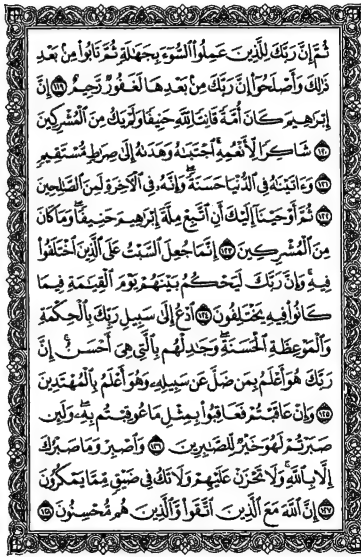 ثُمَّ إِنَّ رَبَّكَ لِلَّذِينَ عَمِلُوا۟ ٱلسُّوٓءَ بِجَهَٰلَةٍ ثُمَّ تَابُوا۟ مِنۢ بَعْدِ
ذَٰلِكَ وَأَصْلَحُوٓا۟ إِنَّ رَبَّكَ مِنۢ بَعْدِهَا لَغَفُورٌ رَّحِيمٌ ﴿١١٩﴾ إِنَّ
إِبْرَٰهِيمَ كَانَ أُمَّةً قَانِتًا لِّلَّهِ حَنِيفًا وَلَمْ يَكُ مِنَ ٱلْمُشْرِكِينَ
﴿١٢٠﴾ شَاكِرًا لِّأَنْعُمِهِ ٱجْتَبَىٰهُ وَهَدَىٰهُ إِلَىٰ صِرَٰطٍ مُّسْتَقِيمٍ
﴿١٢١﴾ وَءَاتَيْنَٰهُ فِى ٱلدُّنْيَا حَسَنَةً وَإِنَّهُۥ فِى ٱلْءَاخِرَةِ لَمِنَ ٱلصَّٰلِحِينَ
﴿١٢٢﴾ ثُمَّ أَوْحَيْنَآ إِلَيْكَ أَنِ ٱتَّبِعْ مِلَّةَ إِبْرَٰهِيمَ حَنِيفًا وَمَا كَانَ
مِنَ ٱلْمُشْرِكِينَ ﴿١٢٣﴾ إِنَّمَا جُعِلَ ٱلسَّبْتُ عَلَى ٱلَّذِينَ ٱخْتَلَفُوا۟
فِيهِ وَإِنَّ رَبَّكَ لَيَحْكُمُ بَيْنَهُمْ يَوْمَ ٱلْقِيَٰمَةِ فِيمَا
كَانُوا۟ فِيهِ يَخْتَلِفُونَ ﴿١٢٤﴾ ٱدْعُ إِلَىٰ سَبِيلِ رَبِّكَ بِٱلْحِكْمَةِ
وَٱلْمَوْعِظَةِ ٱلْحَسَنَةِ وَجَٰدِلْهُم بِٱلَّتِى هِىَ أَحْسَنُ إِنَّ
رَبَّكَ هُوَ أَعْلَمُ بِمَن ضَلَّ عَن سَبِيلِهِۦ وَهُوَ أَعْلَمُ بِٱلْمُهْتَدِينَ
﴿١٢٥﴾ وَإِنْ عَاقَبْتُمْ فَعَاقِبُوا۟ بِمِثْلِ مَا عُوقِبْتُم بِهِۦ وَلَئِن
صَبَرْتُمْ لَهُوَ خَيْرٌ لِّلصَّٰبِرِينَ ﴿١٢٦﴾ وَٱصْبِرْ وَمَا صَبْرُكَ
إِلَّا بِٱللَّهِ وَلَا تَحْزَنْ عَلَيْهِمْ وَلَا تَكُ فِى ضَيْقٍ مِّمَّا يَمْكُرُونَ
﴿١٢٧﴾ إِنَّ ٱللَّهَ مَعَ ٱلَّذِينَ ٱتَّقَوا۟ وَّٱلَّذِينَ هُم مُّحْسِنُونَ ﴿١٢٨﴾